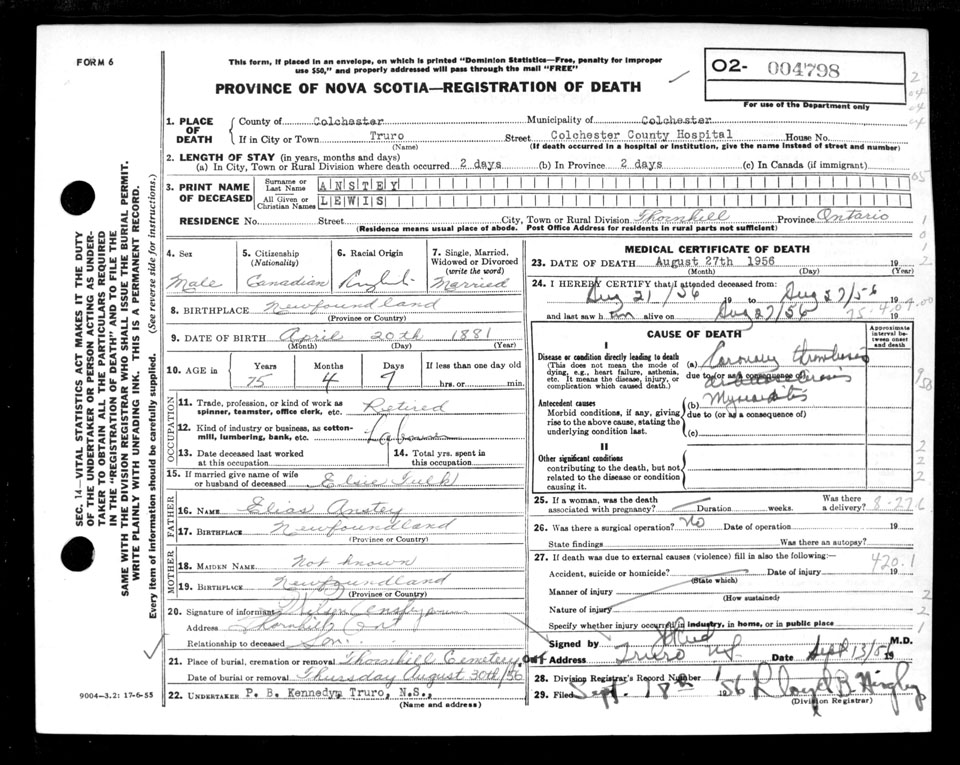 FORM 6
This form, if placed in an envelope, on which is printed "Dominion Statistics—Free, penalty for improper
use $50," and properly addressed will pass through the mail "FREE"
PROVINCE OF NOVA SCOTIA—REGISTRATION OF DEATH
O2- 004798
For use of the Department only
1. PLACE OF DEATH
County of Colchester Municipality of Colchester
If in City or Town Truro Street Colchester County Hospital House No.
(Name) (If death occurred in a hospital or institution, give the name instead of street and number)
2. LENGTH OF STAY (in years, months and days)
(a) In City, Town or Rural Division where death occurred 2 days (b) In Province 2 days (c) In Canada (if immigrant)
3. PRINT NAME OF DECEASED
Surname or Last Name ANSTEY
All Given or Christian Names LEWIS
RESIDENCE No. Street City, Town or Rural Division Thornhill Province Ontario
(Residence means usual place of abode. Post Office Address for residents in rural parts not sufficient)
4. Sex Male
5. Citizenship (Nationality) Canadian
6. Racial Origin English
7. Single, Married, Widowed or Divorced (write the word) Married
8. BIRTHPLACE Newfoundland
(Province or Country)
9. DATE OF BIRTH April 20th 1881
(Month) (Day) (Year)
10. AGE IN Years 75 Months 4 Days 7 If less than one day old hrs. or min.
OCCUPATION
11. Trade, profession, or kind of work as spinner, teamster, office clerk, etc. Retired
12. Kind of industry or business, as cotton-mill, lumbering, bank, etc. Labourer
13. Date deceased last worked at this occupation
14. Total yrs. spent in this occupation
15. If married give name of wife or husband of deceased Elsie Tulk
FATHER
16. NAME Elias Anstey
17. BIRTHPLACE Newfoundland
(Province or Country)
MOTHER
18. MAIDEN NAME Not known
19. BIRTHPLACE Newfoundland
(Province or Country)
20. Signature of informant Anstey
Address Thornhill Ont
Relationship to deceased Son
21. Place of burial, cremation or removal Thornhill Cemetery, Ont
Date of burial or removal Thursday August 30th/56
22. UNDERTAKER P. B. Kennedy, Truro, N.S.,
(Name and address)
MEDICAL CERTIFICATE OF DEATH
23. DATE OF DEATH August 27th 1956 19
(Month) (Day) (Year)
24. I HEREBY CERTIFY that I attended deceased from:
Aug 21/56 19 to Aug 27/56 19
and last saw him alive on Aug 27/56 19
75.4.07.00
CAUSE OF DEATH
Approximate interval between onset and death
I
Disease or condition directly leading to death
(This does not mean the mode of dying, e.g., heart failure, asthenia, etc. It means the disease, injury, or complication which caused death.)
(a) Coronary thrombosis
due to (or as a consequence of)
arteriosclerosis
Antecedent causes
Morbid conditions, if any, giving rise to the above cause, stating the underlying condition last.
(b) Myocarditis
due to (or as a consequence of)
(c)
II
Other significant conditions
contributing to the death, but not related to the disease or condition causing it.
25. If a woman, was the death associated with pregnancy? Duration weeks. Was there a delivery?
26. Was there a surgical operation? No Date of operation 19
State findings Was there an autopsy?
27. If death was due to external causes (violence) fill in also the following:—
420.1
Accident, suicide or homicide? Date of injury 19
(State which)
Manner of injury
(How sustained)
Nature of injury
Specify whether injury occurred in industry, in home, or in public place
Signed by M.D.
Address Truro N.S. Date Sept 13/56 19
28. Division Registrar's Record Number
29. Filed Sept. 18th 1956 Lloyd B
(Division Registrar)
SEC. 14—VITAL STATISTICS ACT MAKES IT THE DUTY
OF THE UNDERTAKER OR PERSON ACTING AS UNDER-
TAKER TO OBTAIN ALL THE PARTICULARS REQUIRED
IN THE "REGISTRATION OF DEATH" AND TO FILE THE
SAME WITH THE DIVISION REGISTRAR WHO SHALL ISSUE THE BURIAL PERMIT.
WRITE PLAINLY WITH UNFADING INK. THIS IS A PERMANENT RECORD.
Every item of information should be carefully supplied. (See reverse side for instructions.)
9004—3.2: 17-6-55